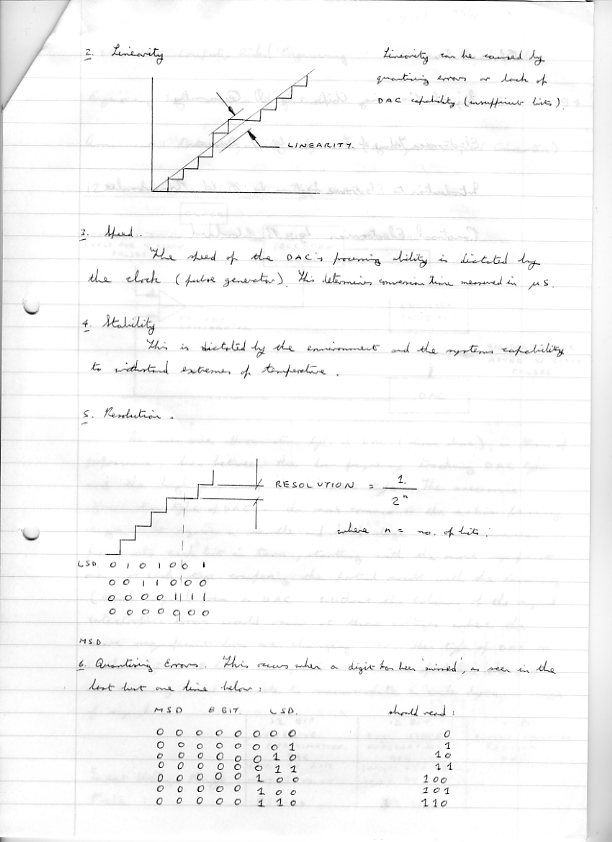 2. Linearity
Linearity can be caused by
quantising errors or lack of
DAC capability (insufficient bits).
LINEARITY.
3. Speed.
The speed of the DAC's processing ability is dictated by
the clock (pulse generator). This determines conversion time measured in µS.
4. Stability
This is dictated by the environment and the systems capability
to withstand extremes of temperature.
5. Resolution.
RESOLUTION = 1
2ⁿ
where n = no. of bits.
LSD 0 1 0 1 0 0 1
0 0 1 1 0 0 0
0 0 0 0 1 1 1
0 0 0 0 0 0 0
MSD
6. Quantising Errors. This occurs when a digit has been 'missed', as seen in the
last but one line below:
MSD 8 BIT LSD. should read:
0 0 0 0 0 0 0 0 0
0 0 0 0 0 0 0 1 1
0 0 0 0 0 0 1 0 10
0 0 0 0 0 0 1 1 11
0 0 0 0 0 1 0 0 100
0 0 0 0 0 1 0 0 101
0 0 0 0 0 1 1 0 110